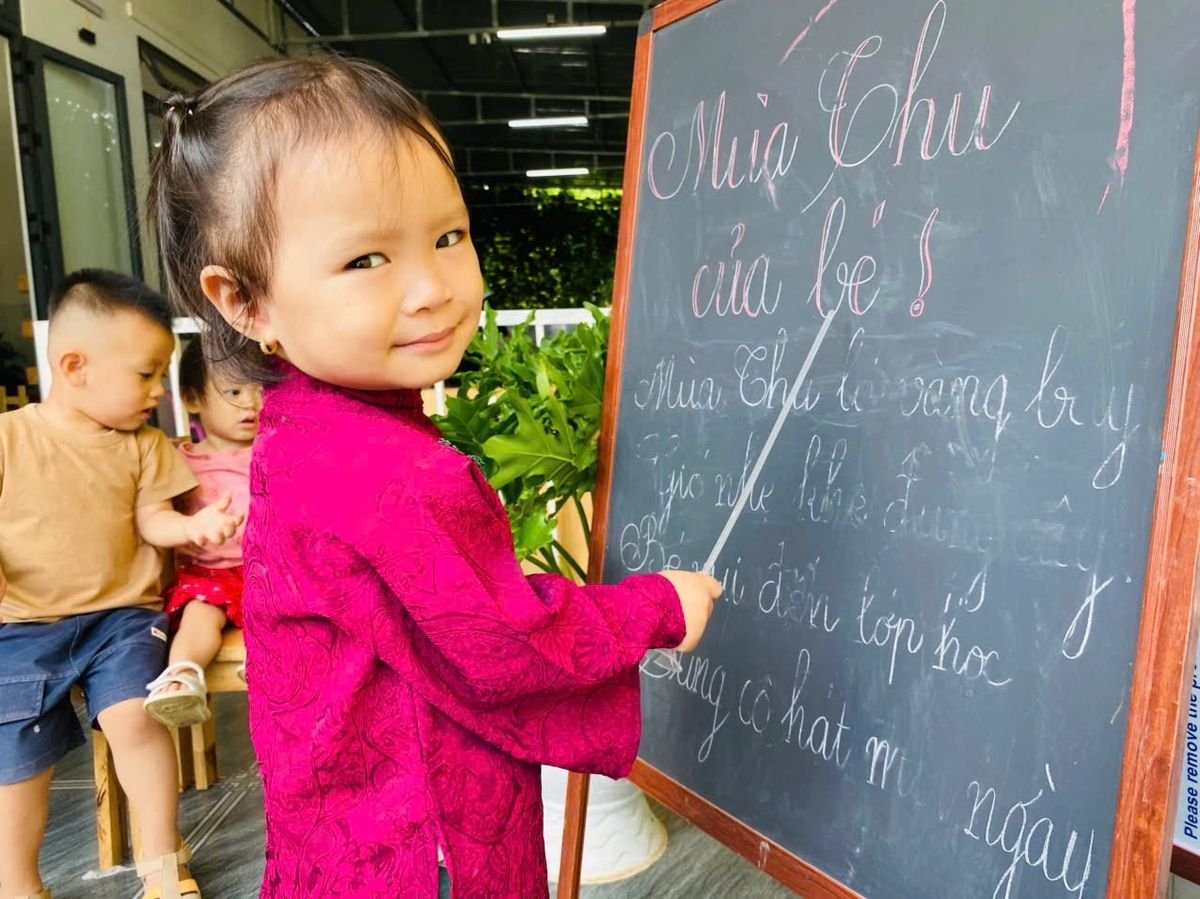 Mùa Thu
của bé!
Mùa Thu lá vàng bay
Gió nhẹ khẽ đung
Bé vui đến lớp học
Cùng cô hát ngày
Please remove the